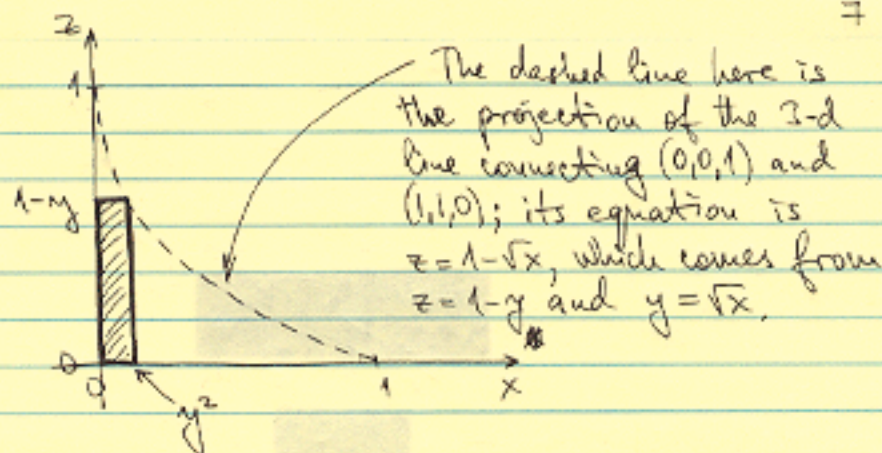 7
z
The dashed line here is
1
the projection of the 3-d
line connecting (0,0,1) and
1-y
(1,1,0); its equation is
z=1-√x, which comes from
z=1-y and y=√x.
0
0
1
x
y²